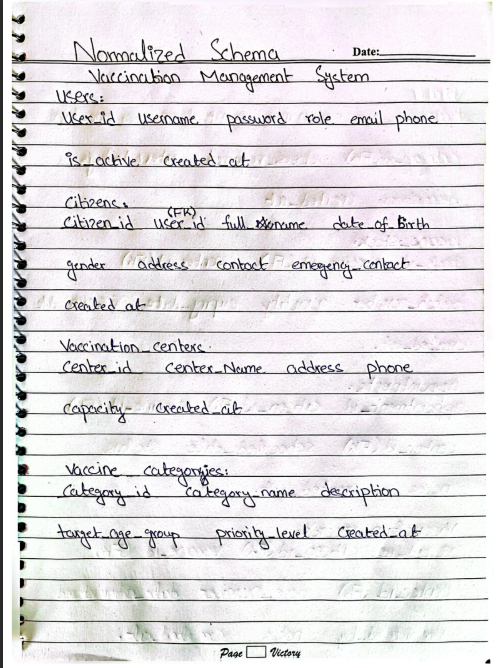 Normalized Schema Date:
Vaccination Management System
Users:
User_id username password role email phone
is_active created_at
Citizens:
(FK)
Citizen_id user_id full_name date_of_Birth
gender address contact emegency_contact
created at
Vaccination_centers.
Center_id center_Name address phone
capacity created_at
Vaccine categories:
Category_id category_name description
target_age_group priority_level Created_at
Page Victory